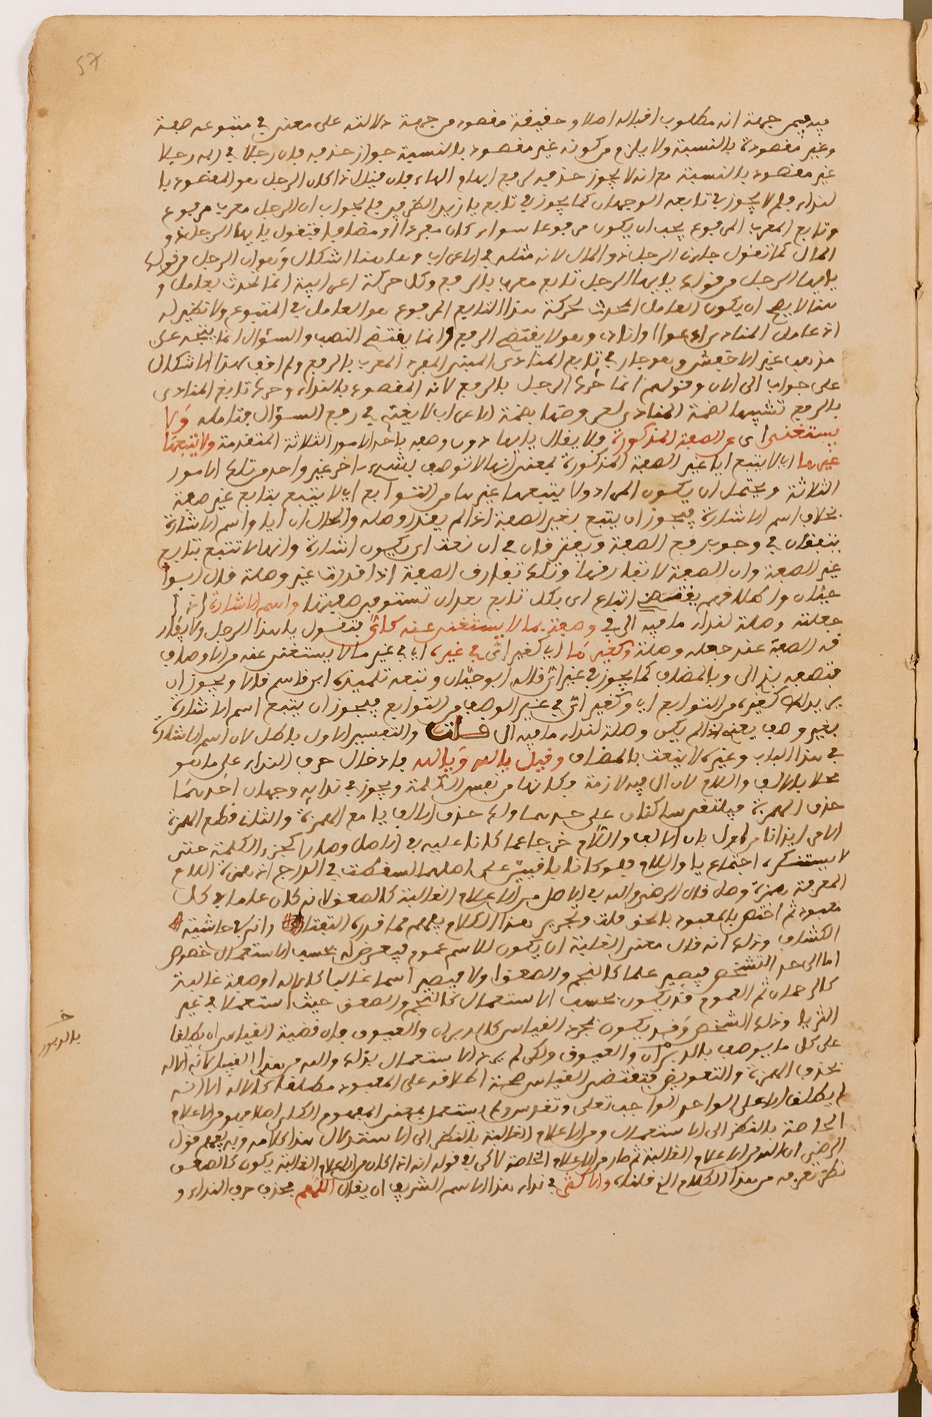 57
فيه فمن جهة انه مطلوب اقباله اصلا وحقيقة مقصود ومن جهة دلالته على معنى في متبوعه صفة
وغير مقصودة بالنسبة ولا يلزم من كونه غير مقصود بالنسبة جواز حذفه فان رجلا في ربه رجلا
غير مقصود بالنسبة مع انه لا يجوز حذفه لرفع ابهام الهاء فان قيل اذا كان الرجل هو المقصود با
لنداء فلم لا يجوز في تابعه الوجهان كما يجوز في تابع يا زيد الظريف فالجواب ان الرجل معرب مرفوع
وتابع المعرب المرفوع يجب ان يكون مرفوعا سواء كان مفردا او مضافا فتقول يا ايها الرجل ذو
المال كما تقول جاءنا الرجل ذو المال لانه مثله في الاعراب وهاهنا اشكال وهو ان الرجل من قولك
يا ايها الرجل تابع معرب بالرفع وكل حركة اعرابية انما تحدث بعامل و
هنا لا يصح ان يكون العامل المحدث لحركة هذا التابع المرفوع هو العامل في المتبوع ولا نظير له
اذ عامل المنادى ادعوا او انادي وهو لا يقتضي الرفع وانما يقتضي النصب والسؤال انما يتجه على
مذهب غير الاخفش وهو جار في تابع المنادى المبني المفرد المعرب بالرفع ولم اقف لهذا الاشكال
على جواب الى الان وقولهم انما حرك الرجل بالرفع لانه المقصود بالنداء وحرك تابع المنادى
بالرفع تشبيها لضمة المنادى لعروضها بضمة الاعراب لا يغني في رفع السؤال فتامله ولا
يستغنى اي عن الصفة المذكورة ولا يقال يا ايها دون وصفه باحد الامور الثلاثة المتقدمة ولا يتبعها
غيرها اي لا يتبع ايا غير الصفة المذكورة بمعنى انها لا توصف بشيء اخر غير واحد من تلك الامور
الثلاثة ويحتمل ان يكون المراد ولا يتبعها غيرها من التوابع اي لا يتبع بتابع غير صفة
بخلاف اسم الاشارة فيجوز ان يتبع بغير الصفة اذا لم يقدر وصلة والحال ان ايا واسم الاشارة
يتفقان في وجوب رفع الصفة ويفترقان في ان نعت اي يكون اشارة وانها لا تتبع بتابع
غير الصفة وان الصفة لا تفارقها وتلك تفارق الصفة اذا قدرت غير وصلة قال ابو
حيان اتباع اي بكل تابع بعد ان تستوفي صفتها واسم الاشارة اذا
جعلته وصلة لنداء ما فيه ال في وصفه بما لا يستغنى عنه كاي فتقول يا هذا الرجل ولا يفار
قه الصفة عند جعله وصلة وكغيرها اي كغير اي في غيره اي في غير ما لا يستغنى عنه من الاوصاف
فتصفه بذي ال وبالمضاف كما يجوز في غير اي قاله ابو حيان وتبعه تلميذه ابن قاسم قالا ويجوز ان
يريد من التوابع اي وكغير اي في غير الوصف من التوابع فيجوز ان يتبع اسم الاشارة
بغير وصف يعني اذا لم يكن وصلة لنداء ما فيه ال قلت والتفسير الاول باطل لان اسم الاشارة
في هذا الباب وغيره لا ينعت بالمضاف وقيل بالله ويالله بادخال حرف النداء على ما هو
محلا بالالف واللام لان ال فيه لازمة وكانها من نفس الكلمة ويجوز في ندائه وجهان احدهما
حذف الهمزة فيلتقي ساكنان على حدهما ولك حذف الالف يا مع الهمزة والثاني قطع الهمزة
الاولى ايذانا من اول بان الالف واللام خرجا عما كانا عليه في الاصل وصارا كجزء الكلمة حتى
لا يستنكر اجتماع يا واللام فلو كانا باقيين على اصلهما لسقطت في الدرج اذ همزة اللام
المعرفة همزة وصل قال الرضي والله في الاصل من الاعلام الغالبة كالصعق لانه كان عاما في كل
معبود ثم اختص بالمعبود بالحق قلت وتحرير هذا الكلام يعلم مما قدره التفتازاني في حاشية
الكشاف وذلك انه قال معنى الغلبة ان يكون للاسم عموم فيعرض له بحسب الاستعمال خصوص
اما الى حد التشخص فيصير علما كالنجم والصعق او لا فيصير اسما غالبا كالاله او صفة غالبة
كالرحمان ثم العموم قد يكون بحسب الاستعمال كالنجم والصعق حيث استعملا في غير
الثريا وذلك الشخص وقد يكون بمجرد القياس كالدبران والعيوق فان قضية القياس ان يطلقا
على كل ما يوصف بالدبران والعيوق ولكن لم يرد الاستعمال بذلك والله من هذا القبيل لانه الاله
بحذف الهمزة والتعويض فتقتضي القياس صحة اطلاقه على المعبود مطلقا كالاله الا انه
لم يطلق الا على الواحد الواجب تعالى وتقدس ولم يستعمل بمعنى المفهوم الكلي اصلا فهو من الاعلام
الخاصة بالنظر الى الاستعمال ومن الاعلام الغالبة بالنظر الى الاستدلال هذا كلامه وبه يفهم قول
الرضي ان الله من الاعلام الغالبة ثم صار من الاعلام الخاصة لكن في قوله انه اذا كان من الاعلام الغالبة يكون كالصعق
نظر تعرفه من هذا الكلام الذي قلناه والاكثر في نداء هذا الاسم الشريف ان يقال اللهم بحذف حرف النداء و
بالدبور